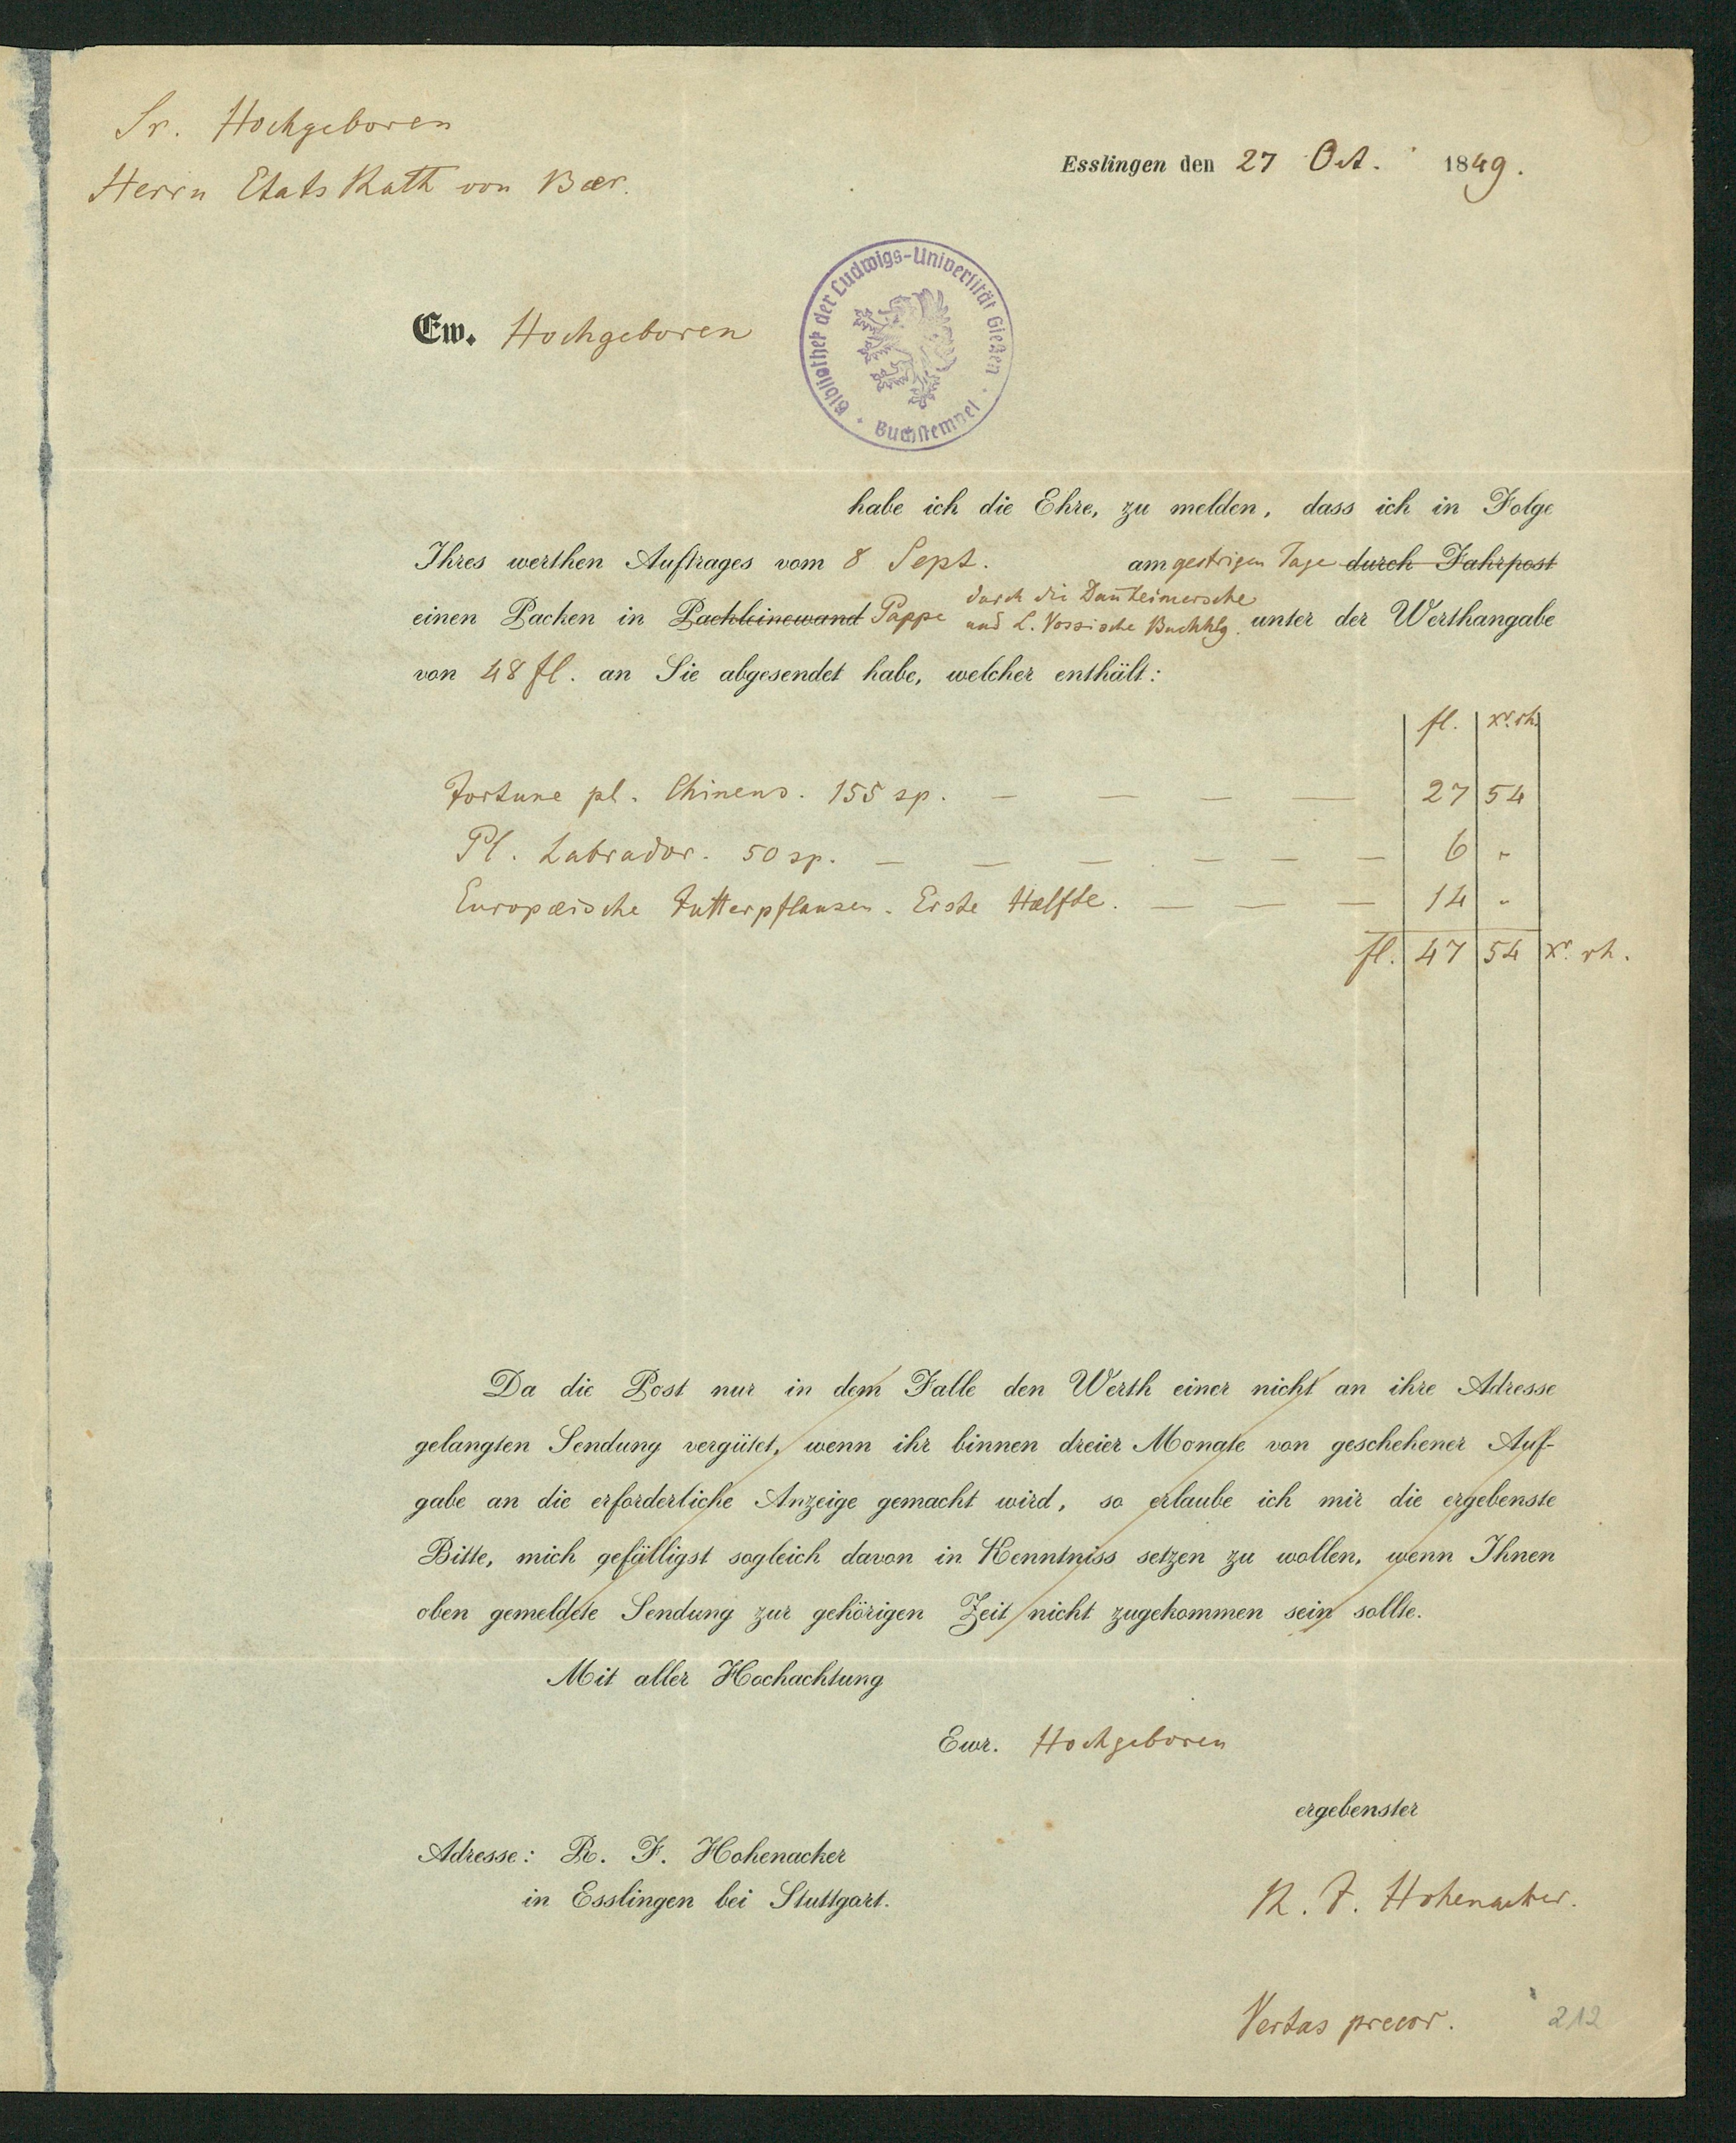 Sr. Hochgeboren
Herrn Etats Rath von Baer.
Esslingen den 27 Oct. 1849.
Bibliothek der Ludwigs-Universität Gießen · Buchstempel ·
Ew. Hochgeboren
habe ich die Ehre, zu melden, dass ich in Folge
Ihres werthen Auftrages vom 8 Sept. am gestrigen Tage durch Fahrpost
durch die Dañheimersche
einen Packen in Packleinewand Pappe und L. Vossische Buchhlg. unter der Werthangabe
von 48 fl. an Sie abgesendet habe, welcher enthält:
fl. xr. rh.
Fortune pl. Chinens. 155 sp. — — — — 27 54
Pl. Labrador. 50 sp. — — — — — — 6 "
Europæische Futterpflanzen. Erste Hælfte. — — — 14 "
fl. 47 54 xr. rh.
Da die Post nur in dem Falle den Werth einer nicht an ihre Adresse
gelangten Sendung vergütet, wenn ihr binnen dreier Monate von geschehener Auf-
gabe an die erforderliche Anzeige gemacht wird, so erlaube ich mir die ergebenste
Bitte, mich gefälligst sogleich davon in Kenntniss setzen zu wollen, wenn Ihnen
oben gemeldete Sendung zur gehörigen Zeit nicht zugekommen sein sollte.
Mit aller Hochachtung
Ewr. Hochgeboren
ergebenster
Adresse: R. F. Hohenacker
in Esslingen bei Stuttgart.
R. F. Hohenacker.
Vertas precor.
212